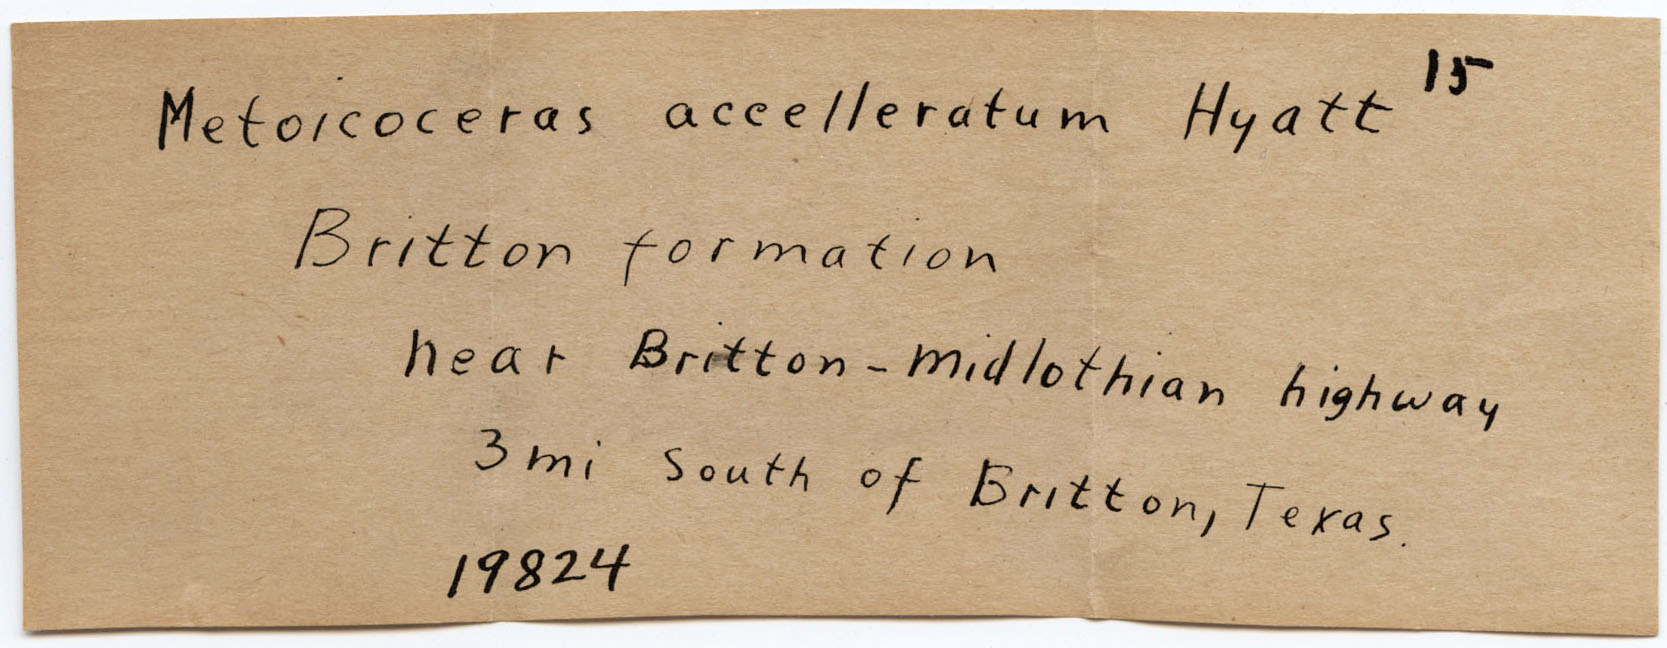 Metoicoceras accelleratum Hyatt 15
Britton formation
near Britton-Midlothian highway
3 mi South of Britton, Texas.
19824